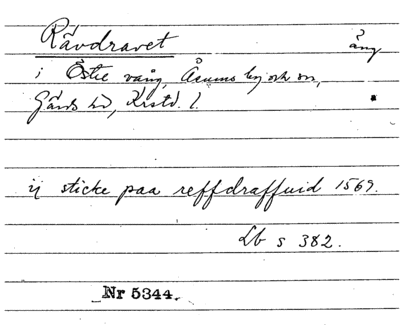 Rävdravet äng
i Östre vång, Åsums by och sn,
Gärds hd, Krstd. l.
ij sticke paa reffdraffuid 1569.
Lb s 382.
Nr 5344.